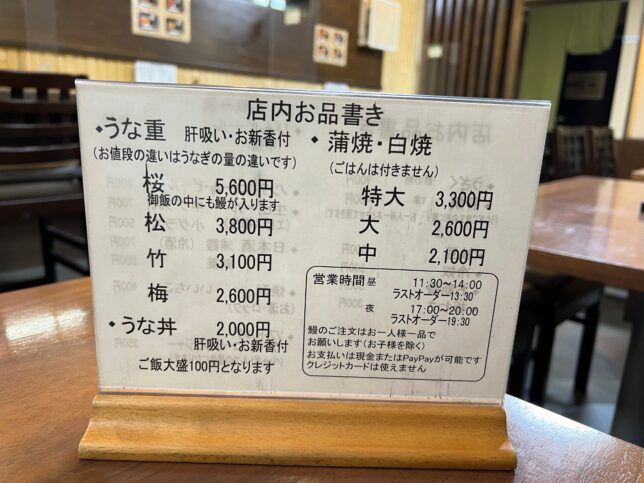 店内お品書き
◆うな重 肝吸い・お新香付
(お値段の違いはうなぎの量の違いです)
桜 5,600円
御飯の中にも鰻が入ります
松 3,800円
竹 3,100円
梅 2,600円
◆うな丼 2,000円
肝吸い・お新香付
ご飯大盛100円となります
◆蒲焼・白焼
(ごはんは付きません)
特大 3,300円
大 2,600円
中 2,100円
営業時間 昼 11:30~14:00
ラストオーダー13:30
夜 17:00~20:00
ラストオーダー19:30
鰻のご注文はお一人様一品で
お願いします(お子様を除く)
お支払いは現金またはPayPayが可能です
クレジットカードは使えません